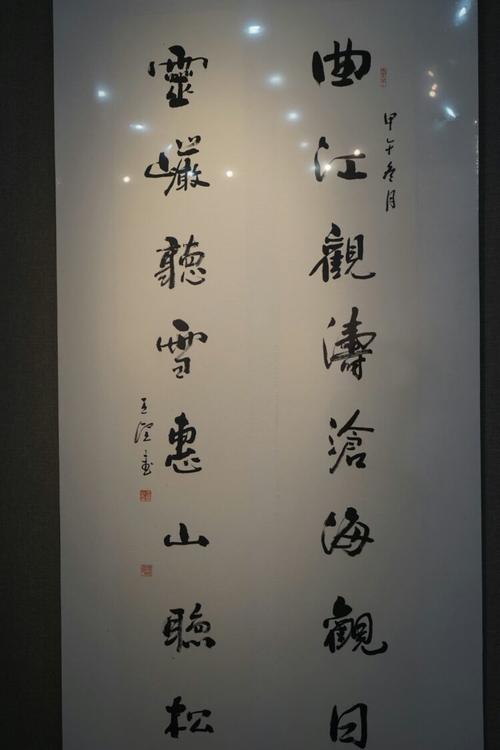 甲午冬月
曲江觀濤滄海觀日
靈巖聽雪惠山聽松